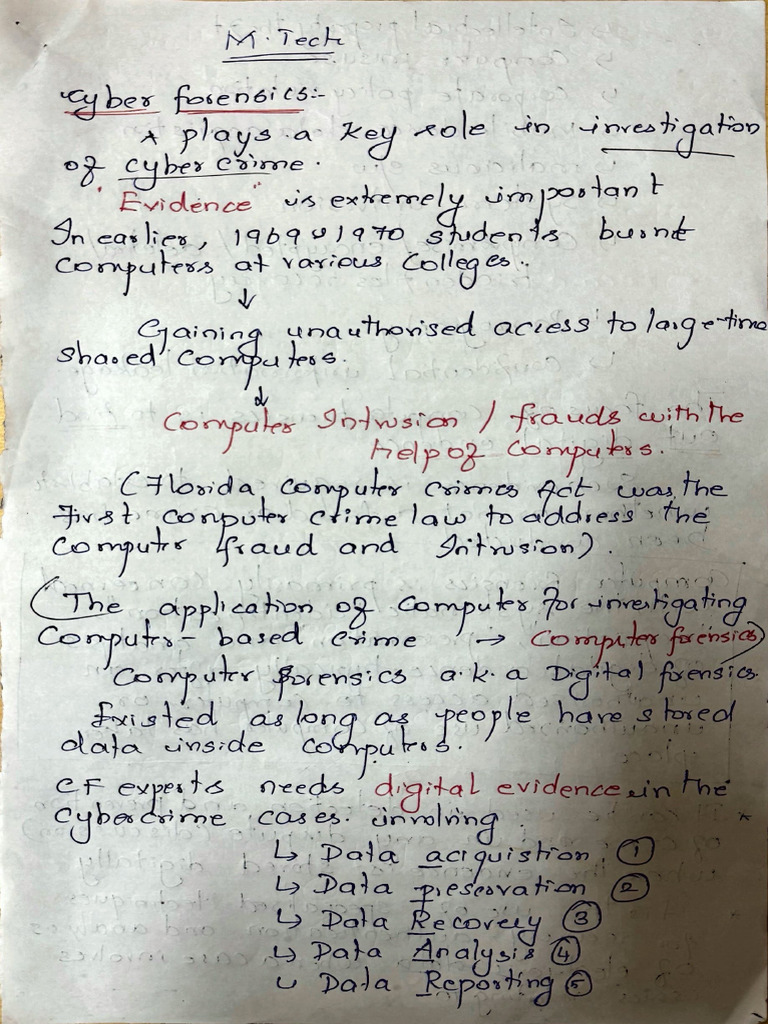 M.Tech
Cyber forensics:-
* plays a key role in investigation
of cyber crime.
"Evidence" is extremely important
In earlier, 1969 & 1970 students burnt
Computers at various Colleges.
↓
Gaining unauthorised access to large-time
shared Computers.
↓
Computer Intrusion / frauds with the
help of Computers.
(Florida Computer Crimes Act was the
First Computer Crime law to address the
Computer fraud and Intrusion).
(The application of Computer for investigating
Computer-based crime → Computer forensics)
Computer forensics a.k.a Digital forensics.
Existed as long as people have stored
data inside computers.
CF experts needs digital evidence in the
Cybercrime cases involving
↳ Data aciquistion ①
↳ Data preservation ②
↳ Data Recovery ③
↳ Data Analysis ④
↳ Data Reporting ⑤